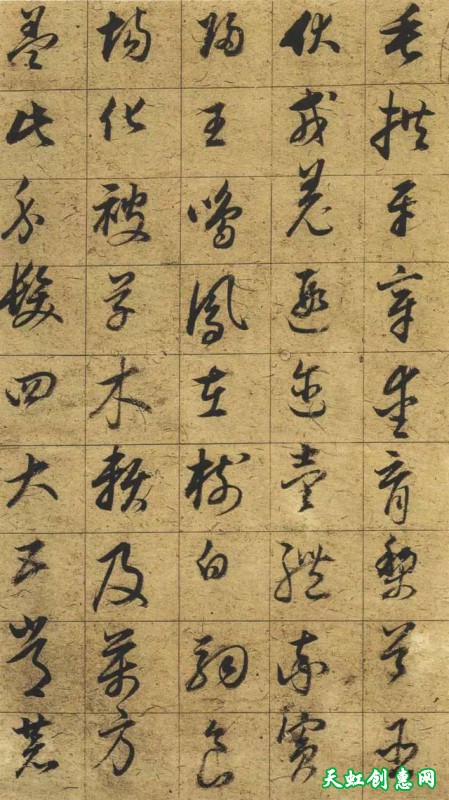 垂拱平章愛育黎首臣
伏戎羌遐邇壹體率賓
歸王鳴鳳在樹白駒食
場化被草木賴及萬方
蓋此身髮四大五常恭
天虹创惠网